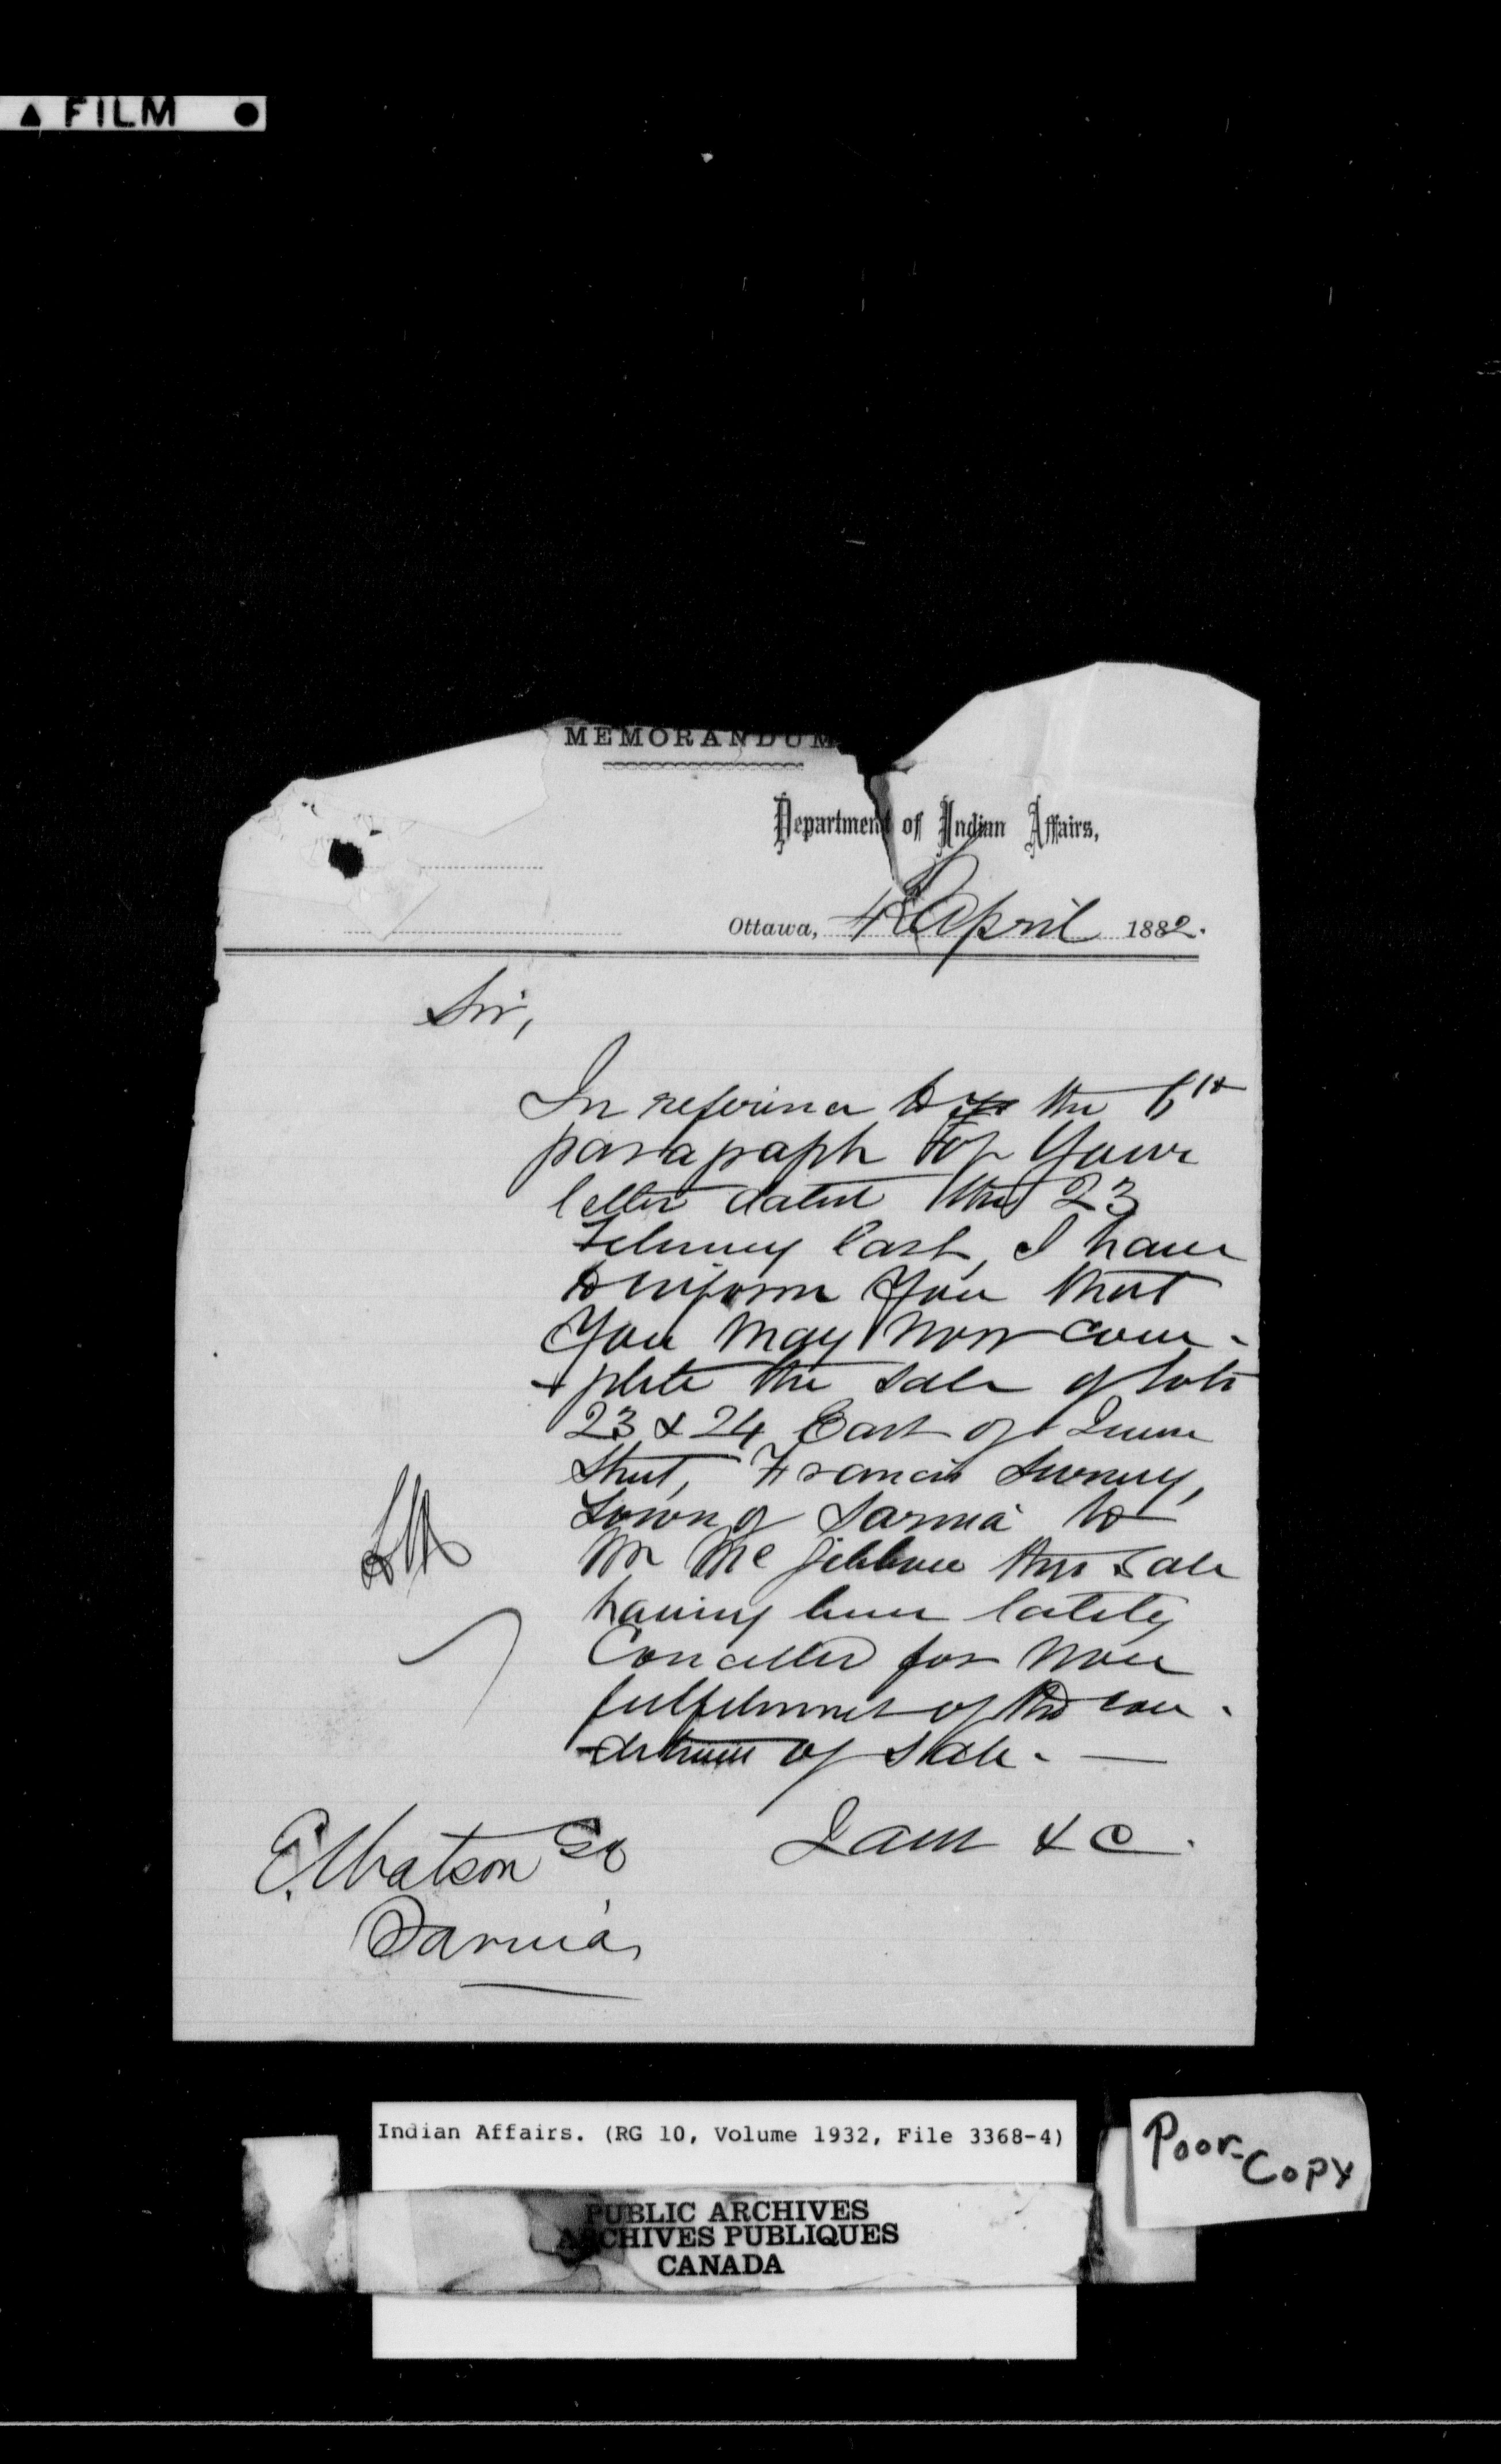 FILM
MEMORANDUM
Department of Indian Affairs,
Ottawa, 4 April 1882.
Sir,
In reference to the 6th
paragraph of Your
letter dated the 23
February last, I have
to inform You that
You may now com-
-plete the sale of lots
23 & 24 East of Queen
Street, Francis Survey,
Town of Sarnia to
Mr Mc Gibbon this sale
having been lately
Cancelled for non
fulfilment of the con-
-ditions of sale. —
I am &c.
E. Watson Esq
Sarnia,
Indian Affairs. (RG 10, Volume 1932, File 3368-4)
Poor Copy
PUBLIC ARCHIVES
ARCHIVES PUBLIQUES
CANADA